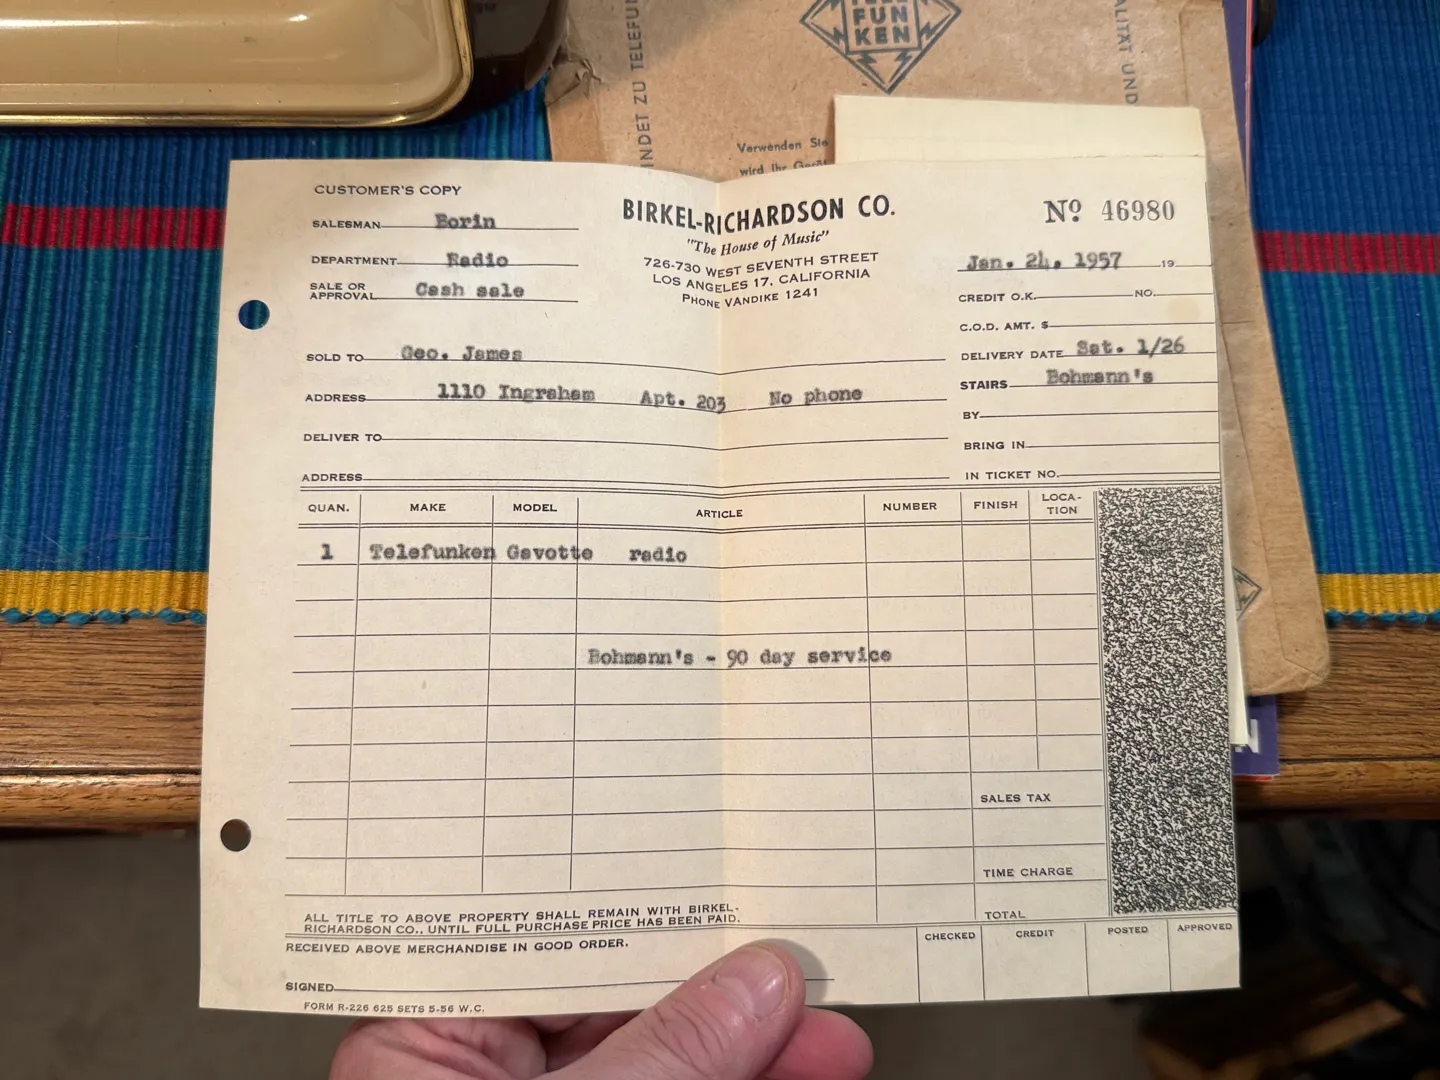 FUN
KEN
NDET ZU TELEFUN
ALITÄT UND
Verwenden Sie
wird Ihr Gerät
CUSTOMER'S COPY
BIRKEL-RICHARDSON CO.
"The House of Music"
726-730 WEST SEVENTH STREET
LOS ANGELES 17, CALIFORNIA
PHONE VANDIKE 1241
Nº 46980
SALESMAN Borin
DEPARTMENT Radio
SALE OR
APPROVAL Cash sale
Jan. 24, 1957 19
CREDIT O.K. NO.
C.O.D. AMT. $
SOLD TO Geo. James
DELIVERY DATE Sat. 1/26
STAIRS Bohmann's
ADDRESS 1110 Ingraham Apt. 203 No phone
BY
DELIVER TO
BRING IN
ADDRESS
IN TICKET NO.
QUAN. MAKE MODEL ARTICLE NUMBER FINISH LOCA-
TION
1 Telefunken Gavotte radio
Bohmann's - 90 day service
SALES TAX
TIME CHARGE
TOTAL
ALL TITLE TO ABOVE PROPERTY SHALL REMAIN WITH BIRKEL-
RICHARDSON CO., UNTIL FULL PURCHASE PRICE HAS BEEN PAID.
RECEIVED ABOVE MERCHANDISE IN GOOD ORDER.
CHECKED CREDIT POSTED APPROVED
SIGNED
FORM R-226 625 SETS 5-56 W.C.